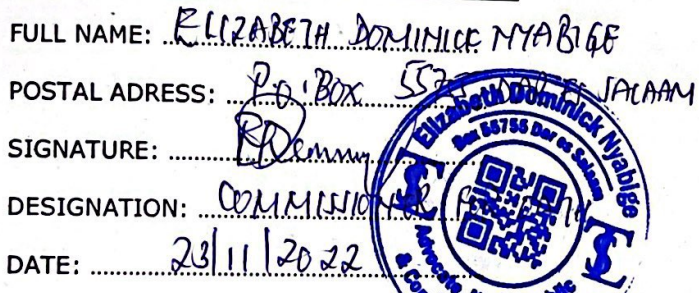 FULL NAME: ELIZABETH DOMINICK NYABIGE
POSTAL ADRESS: P.O. BOX DAR ES SALAAM
SIGNATURE:
DESIGNATION: COMMISSIONER FOR OATH
DATE: 23/11/2022
Elizabeth Dominick Nyabige
Box 55755 Dar es Salaam
Advocate, Notary Public
& Co